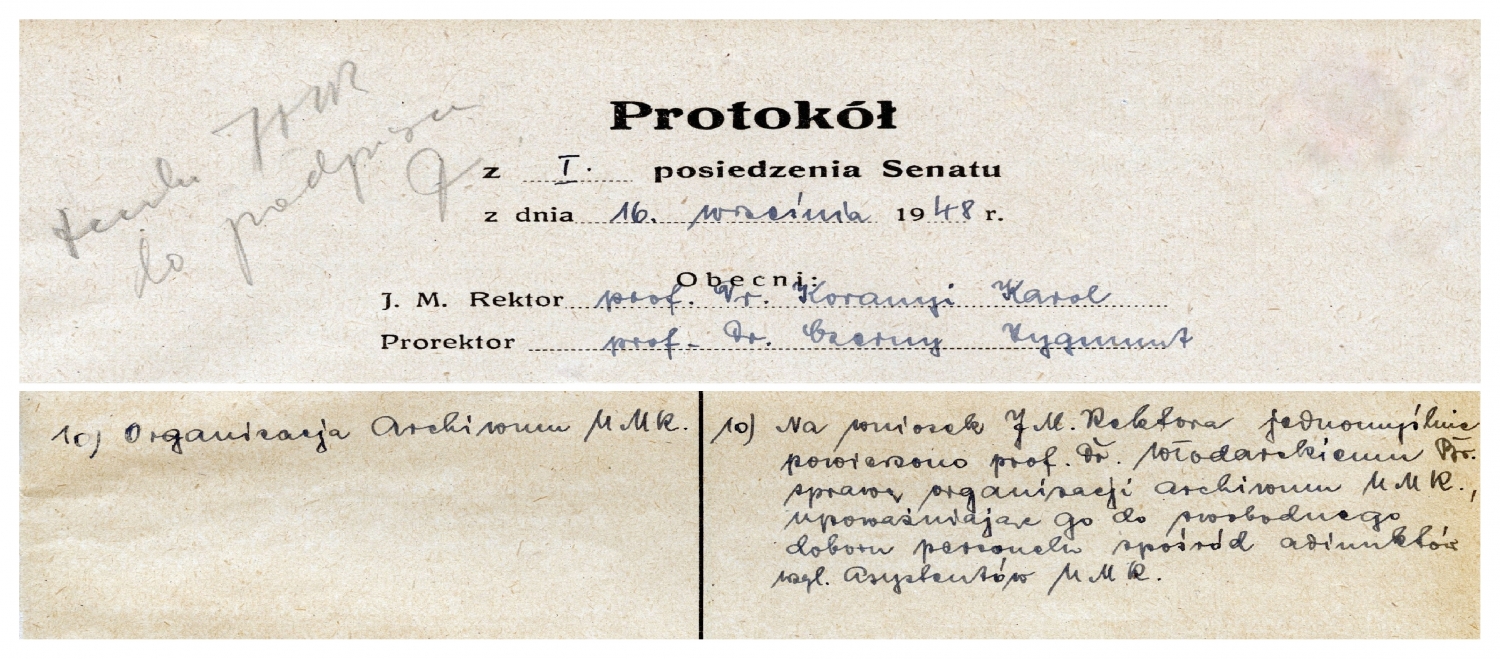 do podpisu
Protokół
z I. posiedzenia Senatu
z dnia 16. września 1948 r.
Obecni:
J. M. Rektor prof. Dr. Koranyi Karol
Prorektor prof. Dr. Czerny Zygmunt
10) Organizacja Archiwum UMK.
10) Na wniosek J.M. Rektora jednomyślnie
powierzono prof. Dr. Włodarskiemu Br.
sprawę organizacji Archiwum UMK.,
upoważniając go do swobodnego
doboru personelu spośród adiunktów
wzgl. Asystentów UMK.